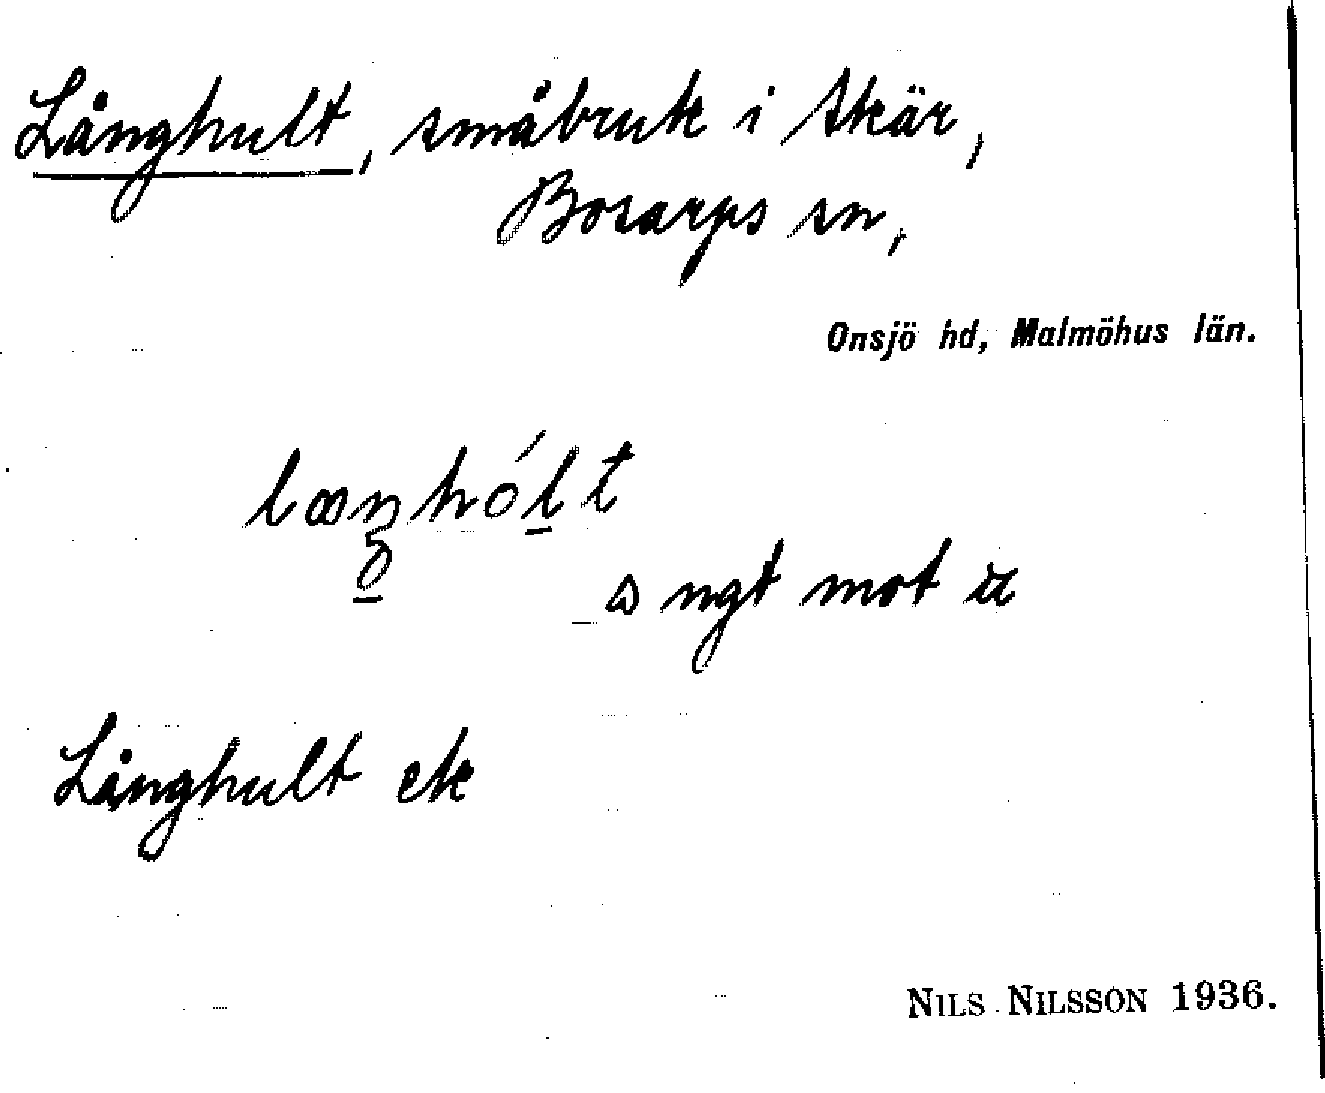 Långhult, småbruk i Skär,
Bosarps sn,
Onsjö hd, Malmöhus län.
ngt mot
Långhult ek
NILS NILSSON 1936.